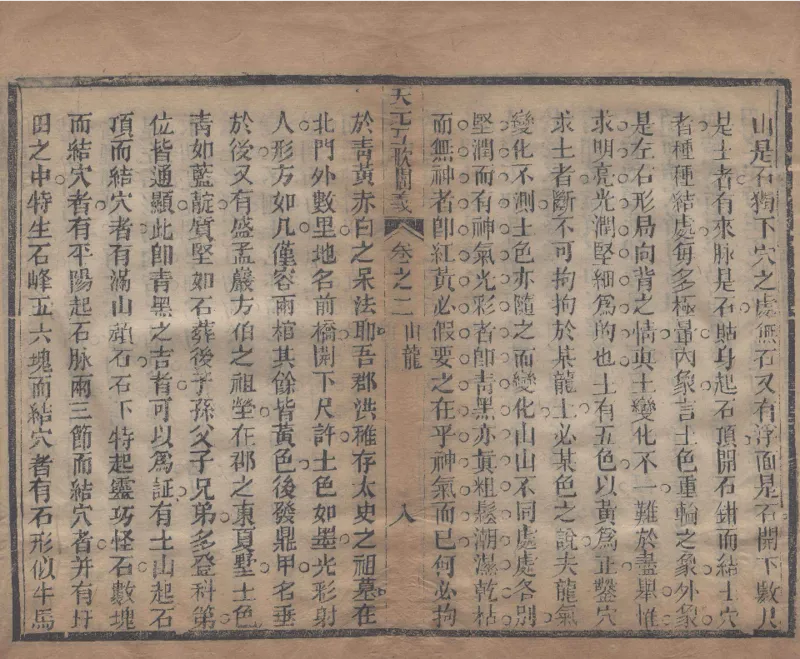 山是石獨下穴之處無石又有浮面是石開下數尺
是土者有來脉是石貼身起石頂開石鉗而結土穴
者種種結處每多極暈內象言土色重輪之象外象
是左石形局向背之情與土變化不一難於盡畢惟
求明亮光潤堅細為的也土有五色以黃為正鑿穴
求土者斷不可拘拘於某龍土必某色之說夫龍氣
變化不測土色亦隨之而變化山山不同處處各別
堅潤而有神氣光彩者卽青黑亦真粗鬆潮濕乾枯
而無神者卽紅黃必假要之在乎神氣而已何必拘
天元五歌闡義 卷之二 山龍 八
於青黃赤白之呆法耶吾郡洪稚存太史之祖墓在
北門外數里地名前橋開下尺許土色如墨光彩射
人形方如几僅容兩棺其餘皆黃色後發鼎甲名垂
於後又有盛孟巖方伯之祖塋在郡之東夏墅土色
青如藍靛質堅如石葬後子孫父子兄弟多登科第
位皆通顯此卽青黑之吉者可以為証有土山起石
頂而結穴者有滿山頑石石下特起靈巧怪石數塊
而結穴者有平陽起石脉兩三節而結穴者并有圩
田之中特生石峰五六塊而結穴者有石形似牛馬